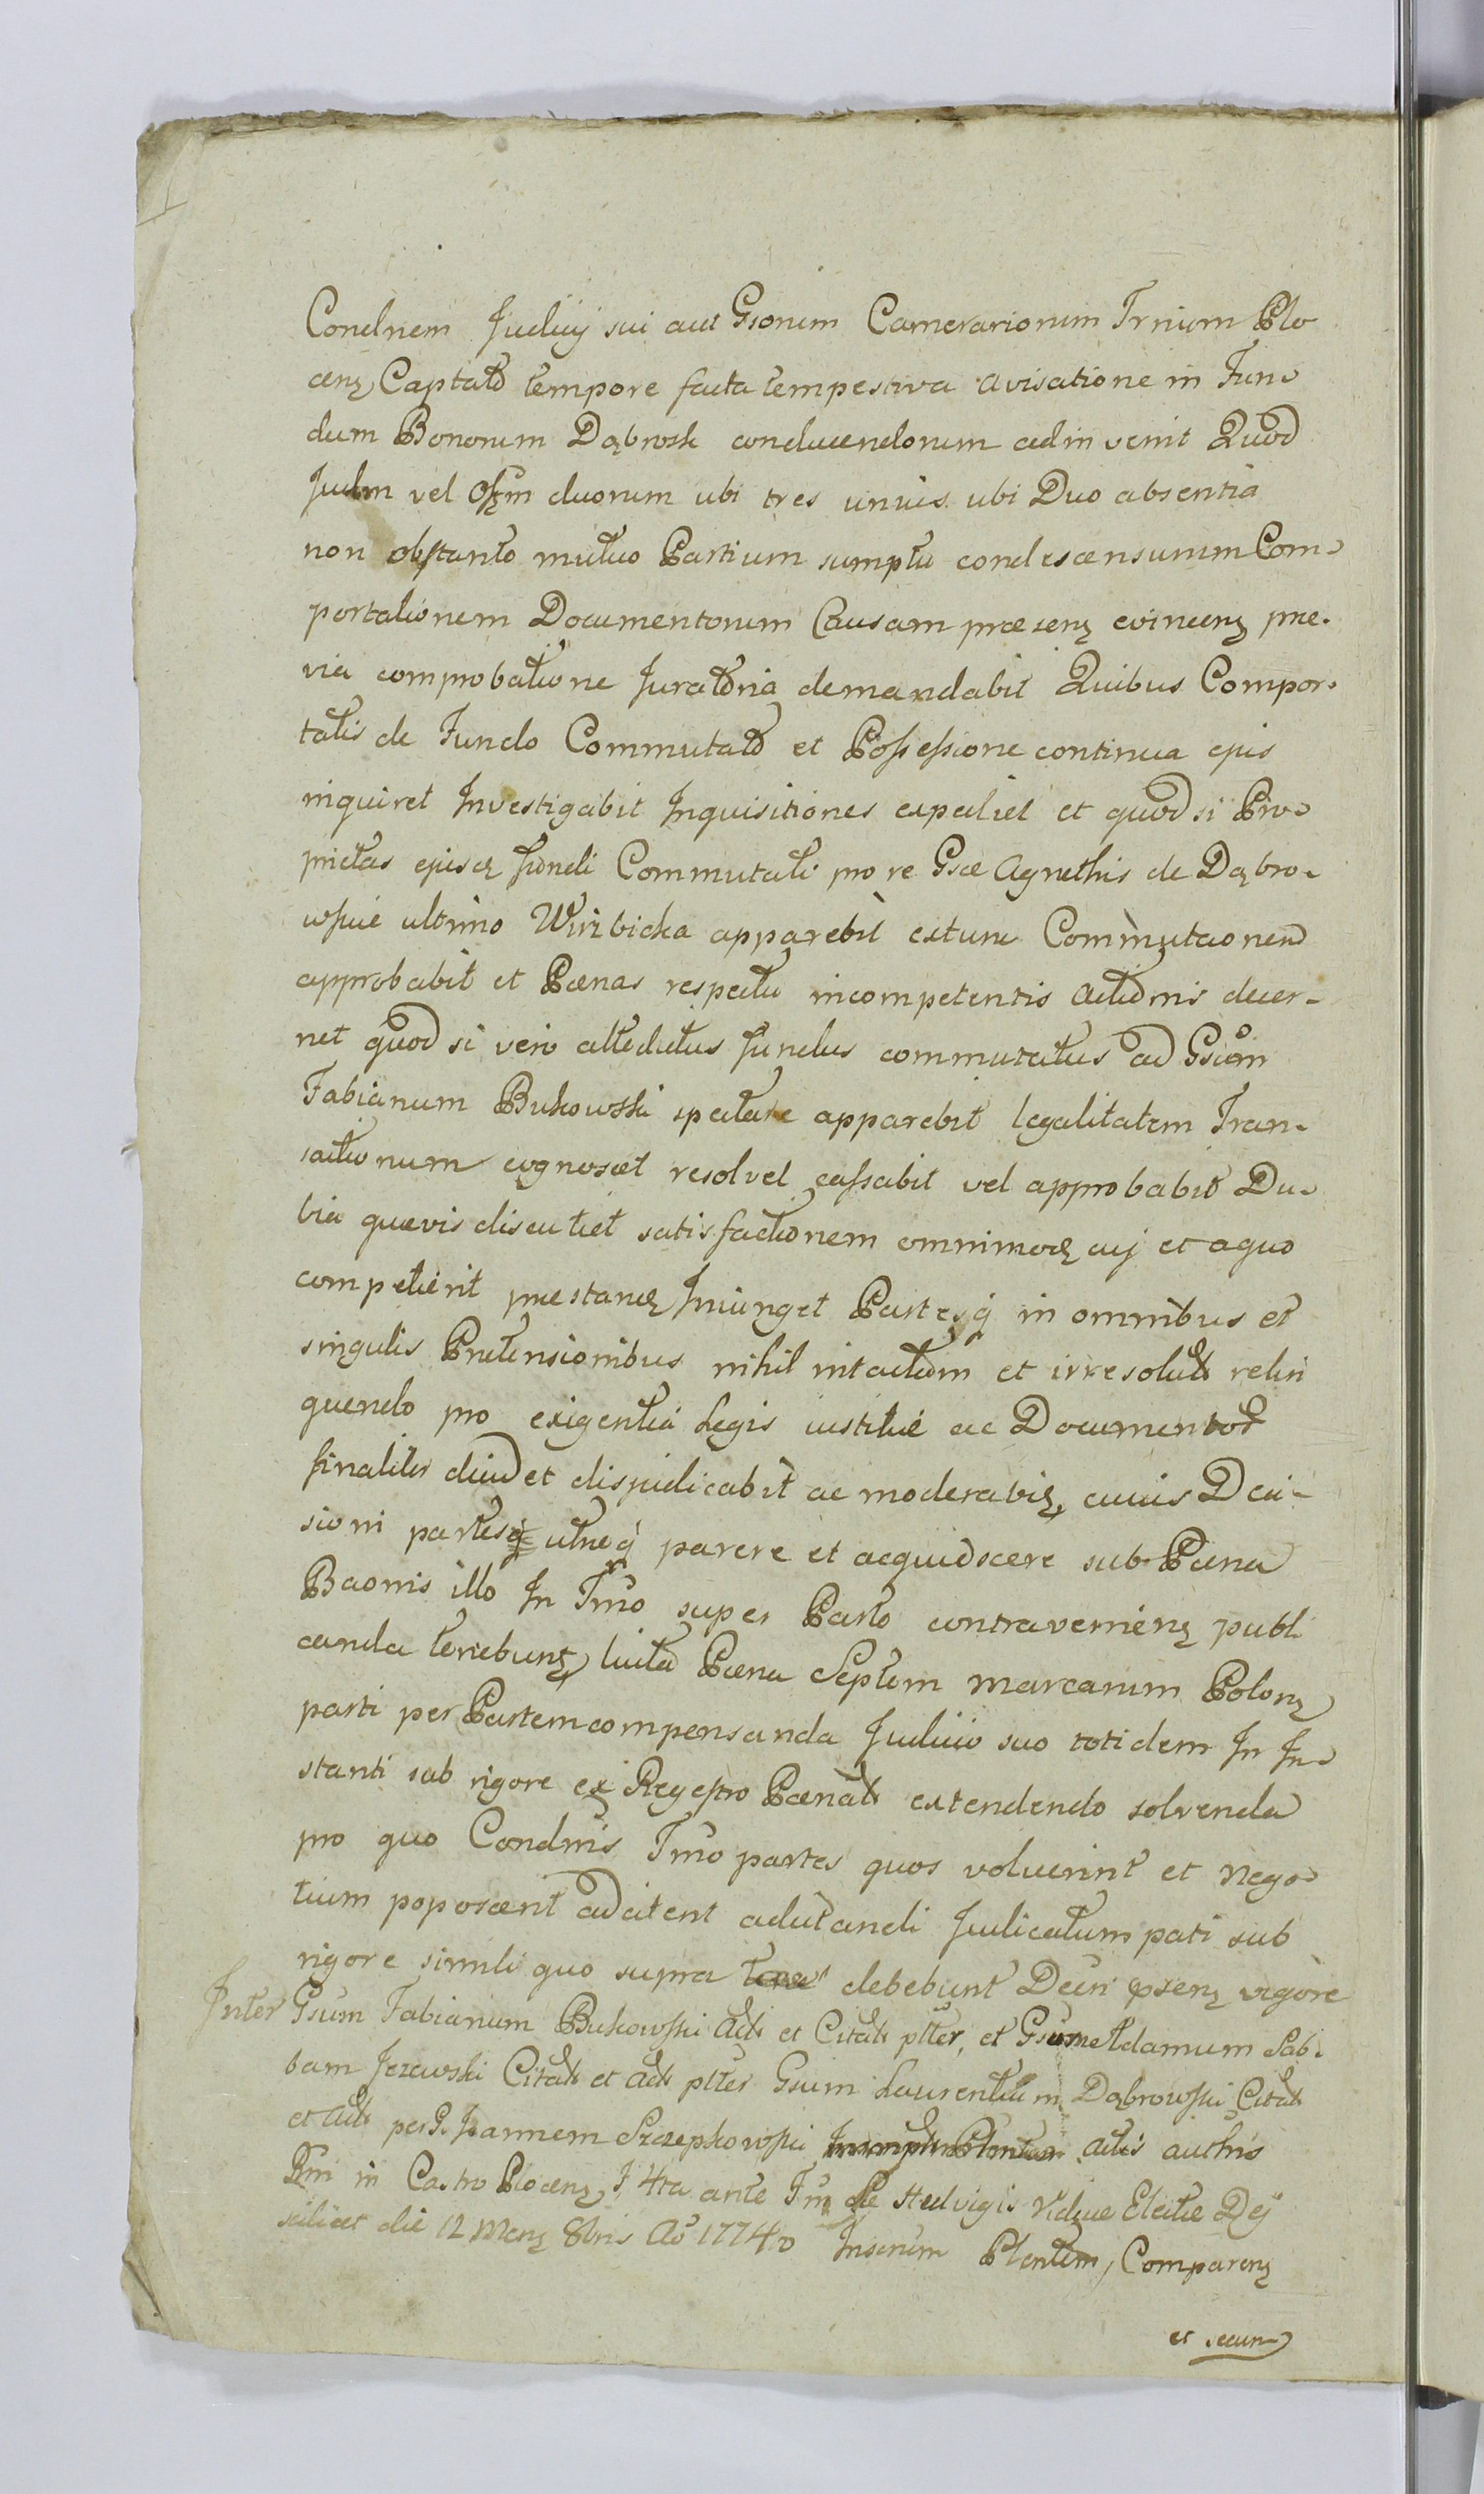 Condnem Judicij sui aut Gsorum Camerariorum Trrium Plo
cens, Captato tempore facta tempestiva avisatione in Fun-
dum Bonorum Dąbrosk conducendorum adinvenit Quod
Judm vel Offm duorum ubi tres unius ubi Duo absentia
non obstante mutuo Partium sumptu condescensurum Com-
portationem Documentorum Causam præsens evincens præ-
via comprobatione Juratoria demandabit Quibus Compor-
tatis de Fundo Commutato et Possessione continua ejus
inquiret Investigabit Inquisitiones expediet et quod si Pro-
prietas ejusd fundi Commutati pro re Gsæ Agnethis de Dąbro-
wskie ultimo Wirzbicka apparebit extunc Commutaonem
approbabit et Pœnas respectu incompetentis actionis decer-
net quod si vero attedictus fundus commutatus ad Gsum
Fabianum Bukowski spectare apparebit legalitatem Tran-
sactionum cognoscet resolvet cassabit vel approbabit Du-
bia quævis discutiet satisfactionem omnimod cuj et a quo
competierit præstand Iniunget Partesq in omnibus et
singulis Prætensionibus nihil intactum et irresolut relin
quendo pro exigentia Legis iustitiæ ac Documentor
finaliter diiud et disjudicabit ac moderabit, cuius Deci-
sioni partesq utræq parere et acquiescere sub Pœna
Baonis illo In Tmo super Parte contraveniens publi
canda tenebunt, luita Pœna Septem marcarum Polon
parti per Partem compensanda Judicio suo totidem In In-
stanti sub rigore ex Regestro Pœnal extendendo solvenda
pro quo Condnis Tmo partes quos voluerint et nego
tium poposcerit adcitent adcitandi Judicatum pati sub
rigore simili quo supra debebunt Decri præsen vigore
Inter Gsum Fabianum Bukowski Act et Citat plter, et Gsum Adamum Sab-
bam Jezewski Citat et Act plter Gsum Laurentium Dąbrowski Citat
et Act per G. Joannem Szczepkowski actis authis
Pni in Castro Plocens F 4ta ante Fm Sæ Hedvigis Viduæ Electæ Dej
scilicet die 12 Mens 8bris Ao 1774o Insertum Plentem, Comparens
et secun